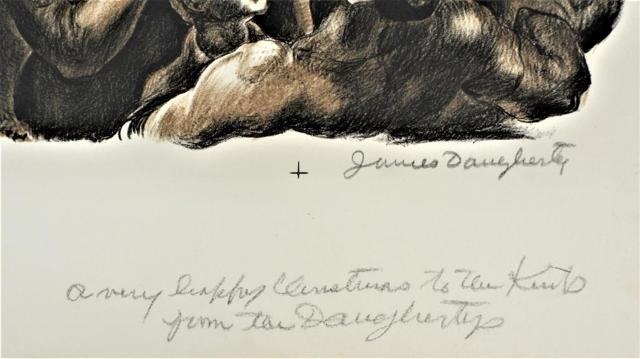 James Daugherty
a very happy Christmas to the Kents
from the Daughertys